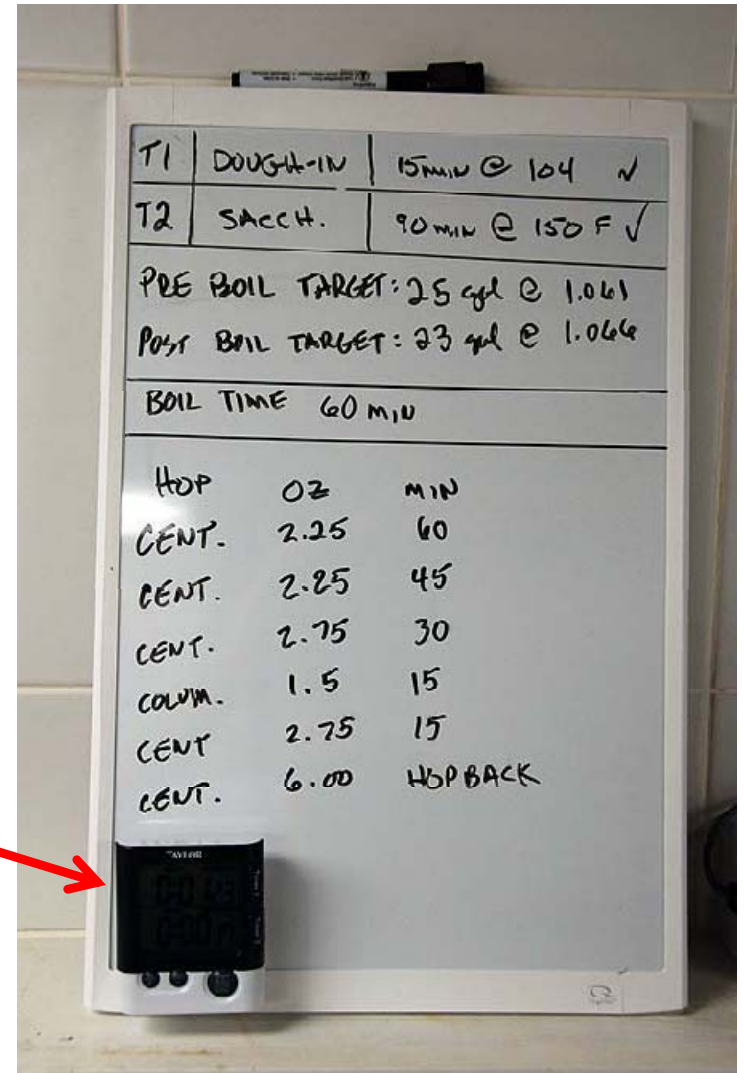 T1 DOUGH-IN 15MIN @ 104 √
T2 SACCH. 90 MIN @ 150 F √
PRE BOIL TARGET: 25 gal @ 1.061
POST BOIL TARGET: 23 gal @ 1.066
BOIL TIME 60 MIN
HOP OZ MIN
CENT. 2.25 60
CENT. 2.25 45
CENT. 2.75 30
COLUM. 1.5 15
CENT 2.75 15
CENT. 6.00 HOPBACK